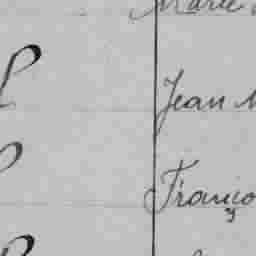 Marie
Jean M
Franço